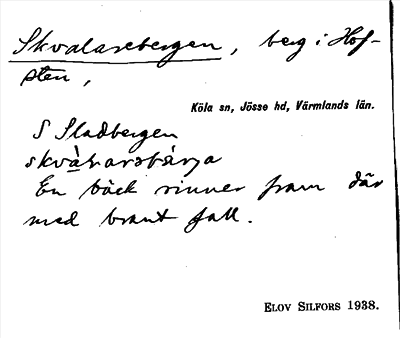 Skvalarebergen, berg i Hof-
sten,
Köla sn, Jösse hd, Värmlands län.
S Sladbergen
skvàlrarsbärja
En bäck rinner fram där
med brant fall.
ELOV SILFORS 1938.